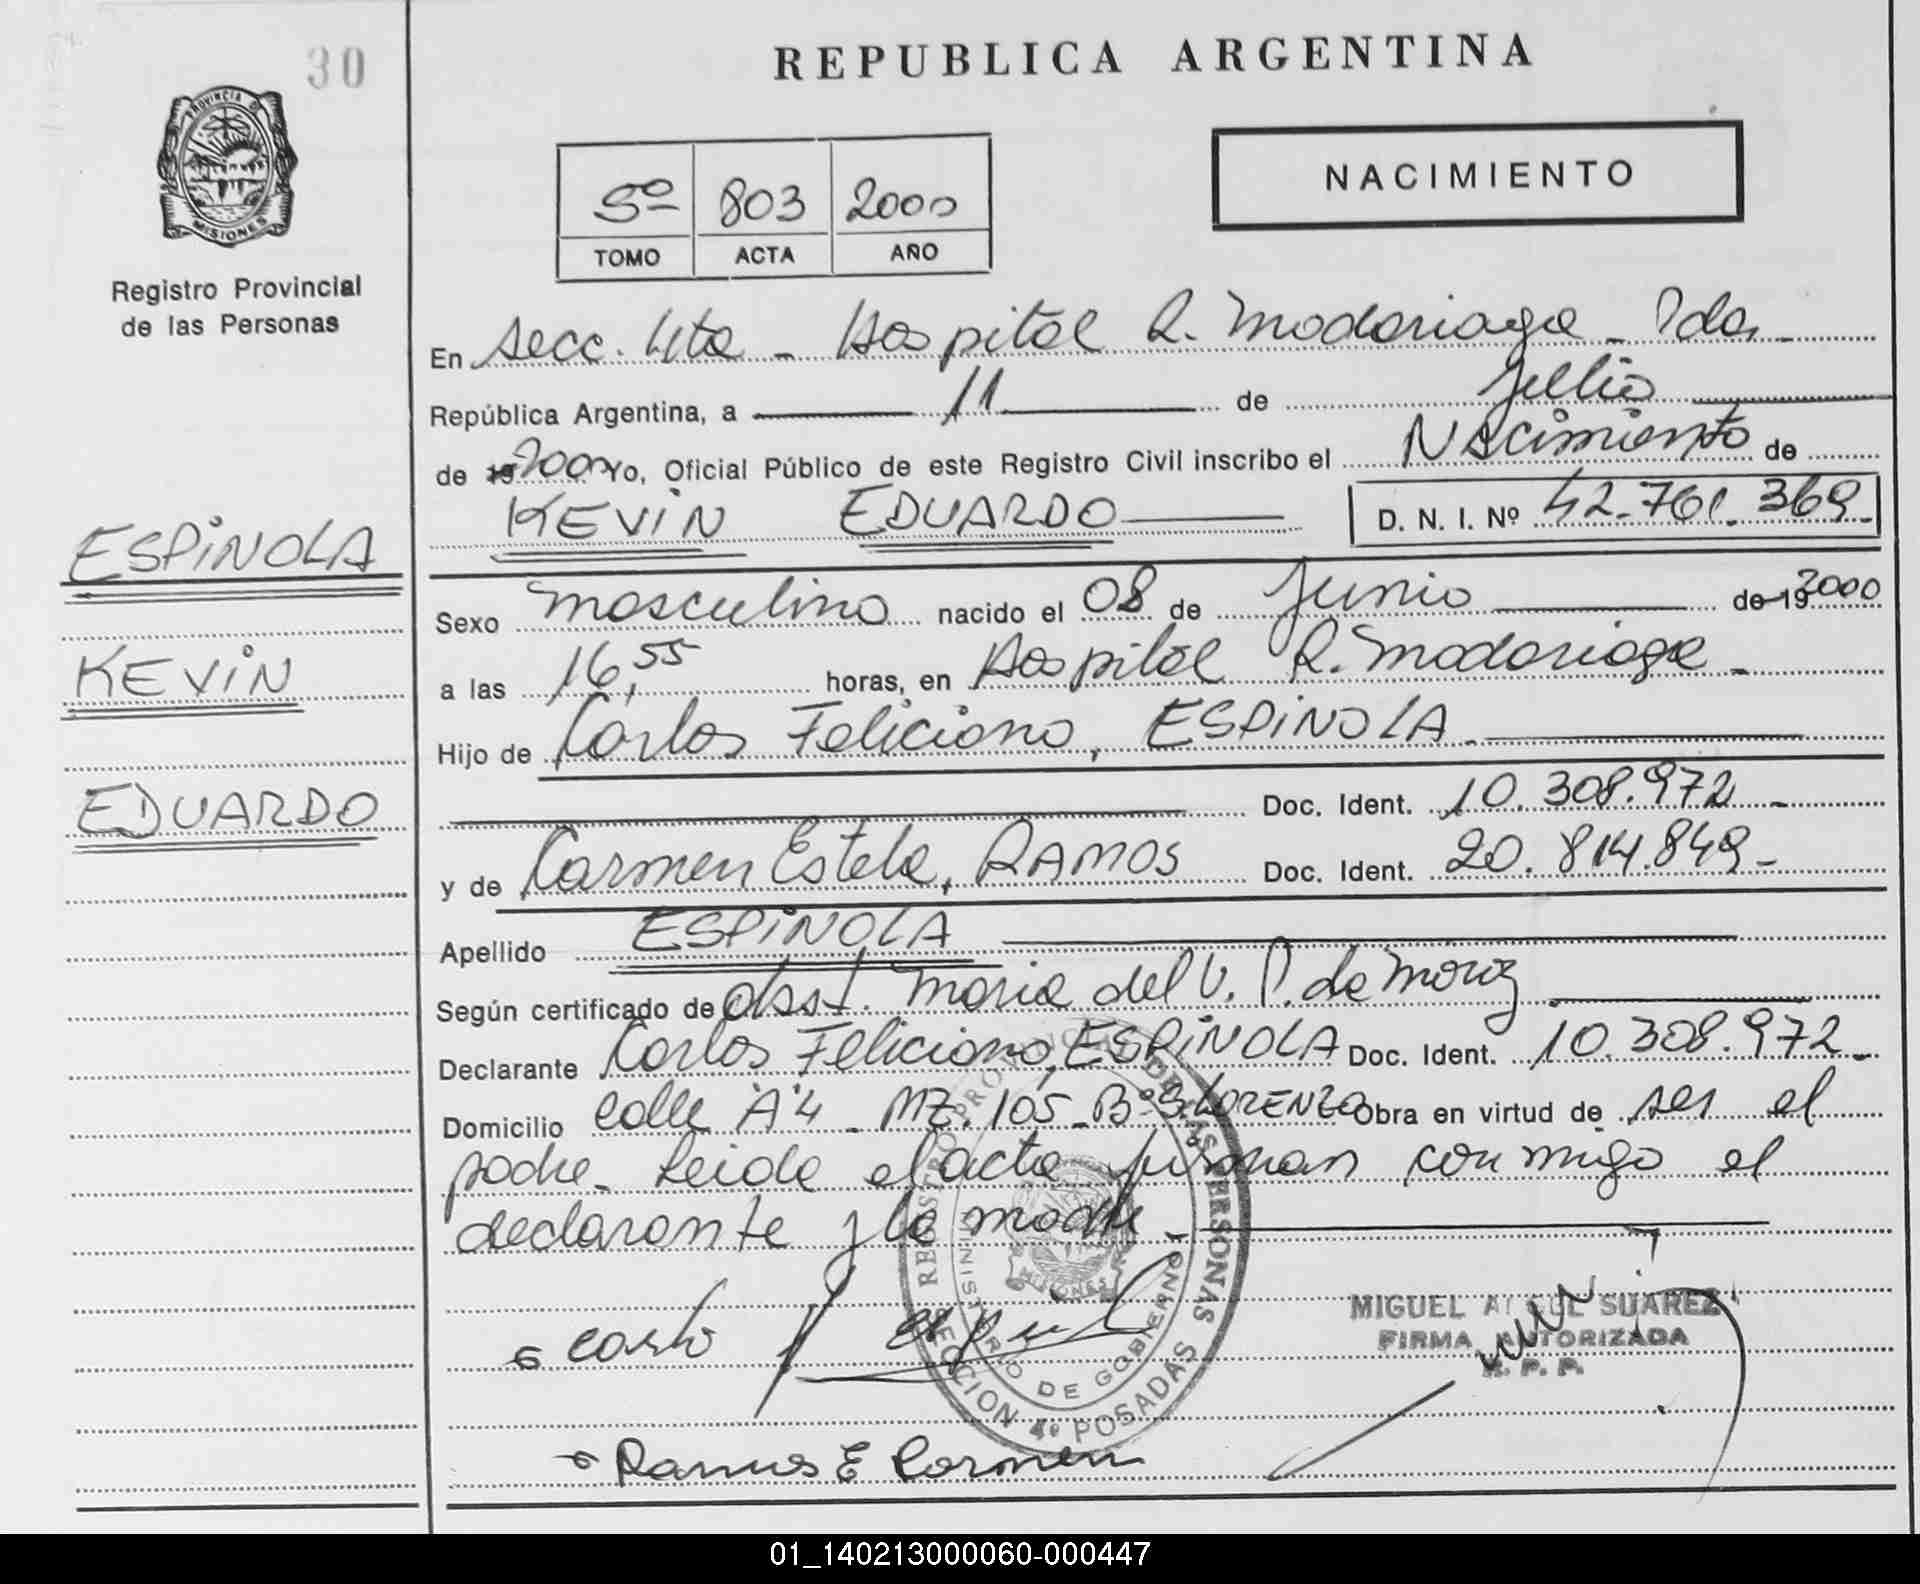 30
REPUBLICA ARGENTINA
PROVINCIA D
MISIONES
Registro Provincial
de las Personas
NACIMIENTO
5º 803 2000
TOMO ACTA AÑO
En Secc. 4ta - Hospital R. Madariaga - Pdas -
República Argentina, a 11 de Julio
de 19 2000 Yo, Oficial Público de este Registro Civil inscribo el Nacimiento de
KEVIN EDUARDO D. N. I. Nº 42.761.369
ESPINOLA
KEVIN
EDUARDO
Sexo masculino nacido el 08 de Junio de 19 2000
a las 16,55 horas, en Hospital R. Madariaga -
Hijo de Carlos Feliciano, ESPINOLA
Doc. Ident. 10.308.972 -
y de Carmen Estela, RAMOS Doc. Ident. 20.814.849 -
Apellido ESPINOLA
Según certificado de Obst. Maria del V. P. de
Declarante Carlos Feliciano, ESPINOLA Doc. Ident. 10.308.972 -
Domicilio calle "A"4 - MZ. 105 - Bº S. LORENZO Obra en virtud de ser el
padre - Leida el acta firman conmigo el
declarante y la madre
REGISTRO PROVINCIAL DE LAS PERSONAS
MINISTERIO DE GOBIERNO
MISIONES
SECCION 4º POSADAS
MIGUEL ANGEL SUAREZ
FIRMA AUTORIZADA
R. P. P.
Carlo
Ramos E Carmen
01_140213000060-000447